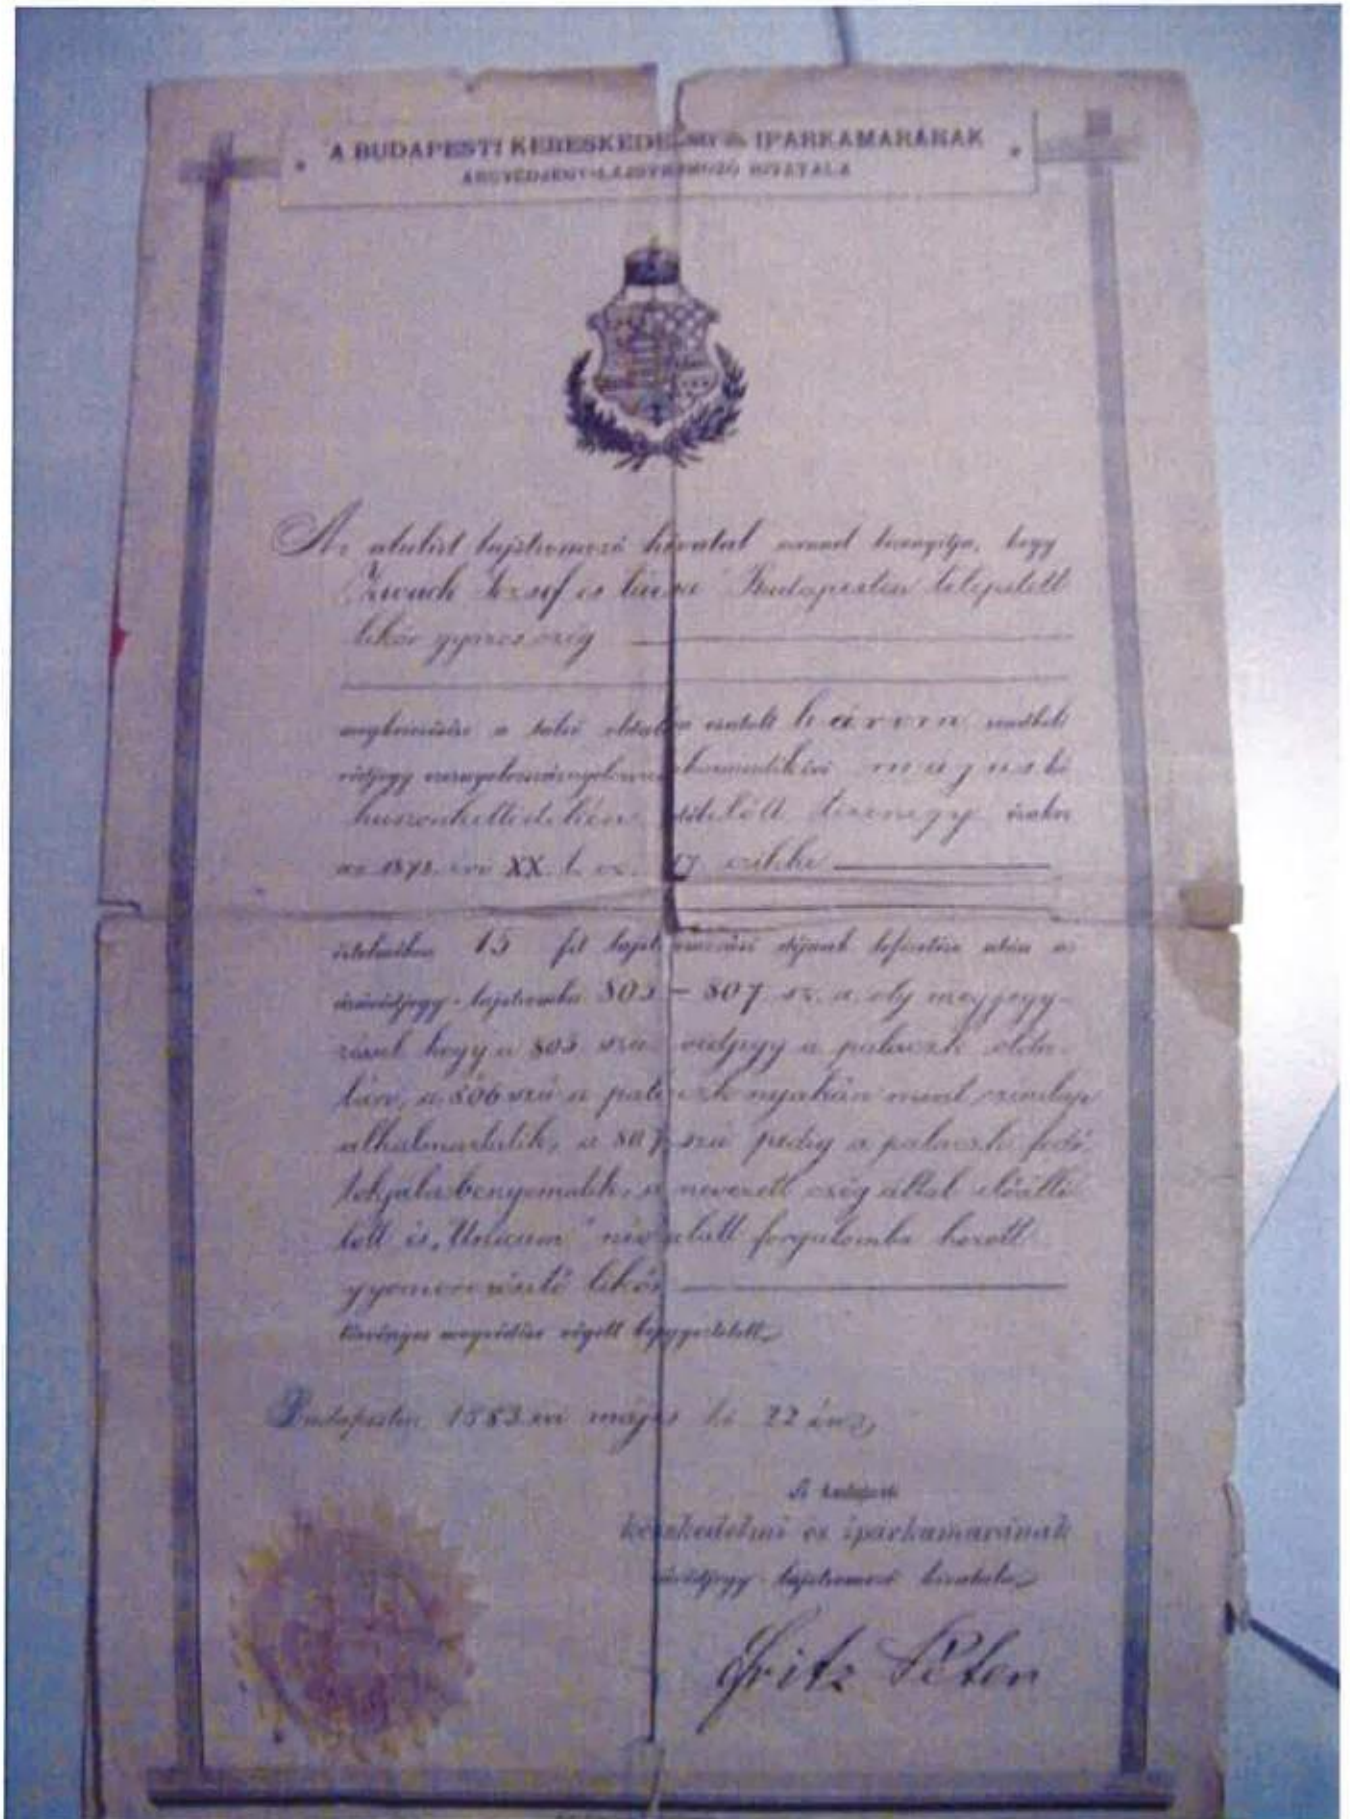 A BUDAPESTI KERESKEDELMI és IPARKAMARÁNAK
ÁRUVÉDJEGY-LAJSTROMOZÓ HIVATALA
Az alulirt lajstromozó hivatal ezennel bizonyitja, hogy
Zwack József és társa Budapesten települt
likör gyáros czég
megkeresésére a túlsó oldalon csatolt három rendbeli
védjegy május hó
huszonkettedikén délelőtt tizenegy órakor
az 1878. évi XX. t. cz. 17. czikke
értelmében 15 frt lajstromozási díjnak lefizetése után az
áruvédjegy-lajstromba 805 – 807 sz. a. oly megjegy-
zéssel hogy a 805 szá. védjegy a palaczk olda-
lán, a 806 szá a palaczk nyakán mint szinlap
alkalmaztatik, a 807 szá pedig a palaczk fedő
tokjába benyomatik, a nevezett czég által előállí-
tott és „Unicum" név alatt forgalomba hozott
gyomorerősítő likőr
törvényes megvédése végett bejegyeztetett.
Budapesten 1883 évi május hó 22 én
A budapesti
kereskedelmi és iparkamarának
áruvédjegy-lajstromozó hivatala
Fritz Péter